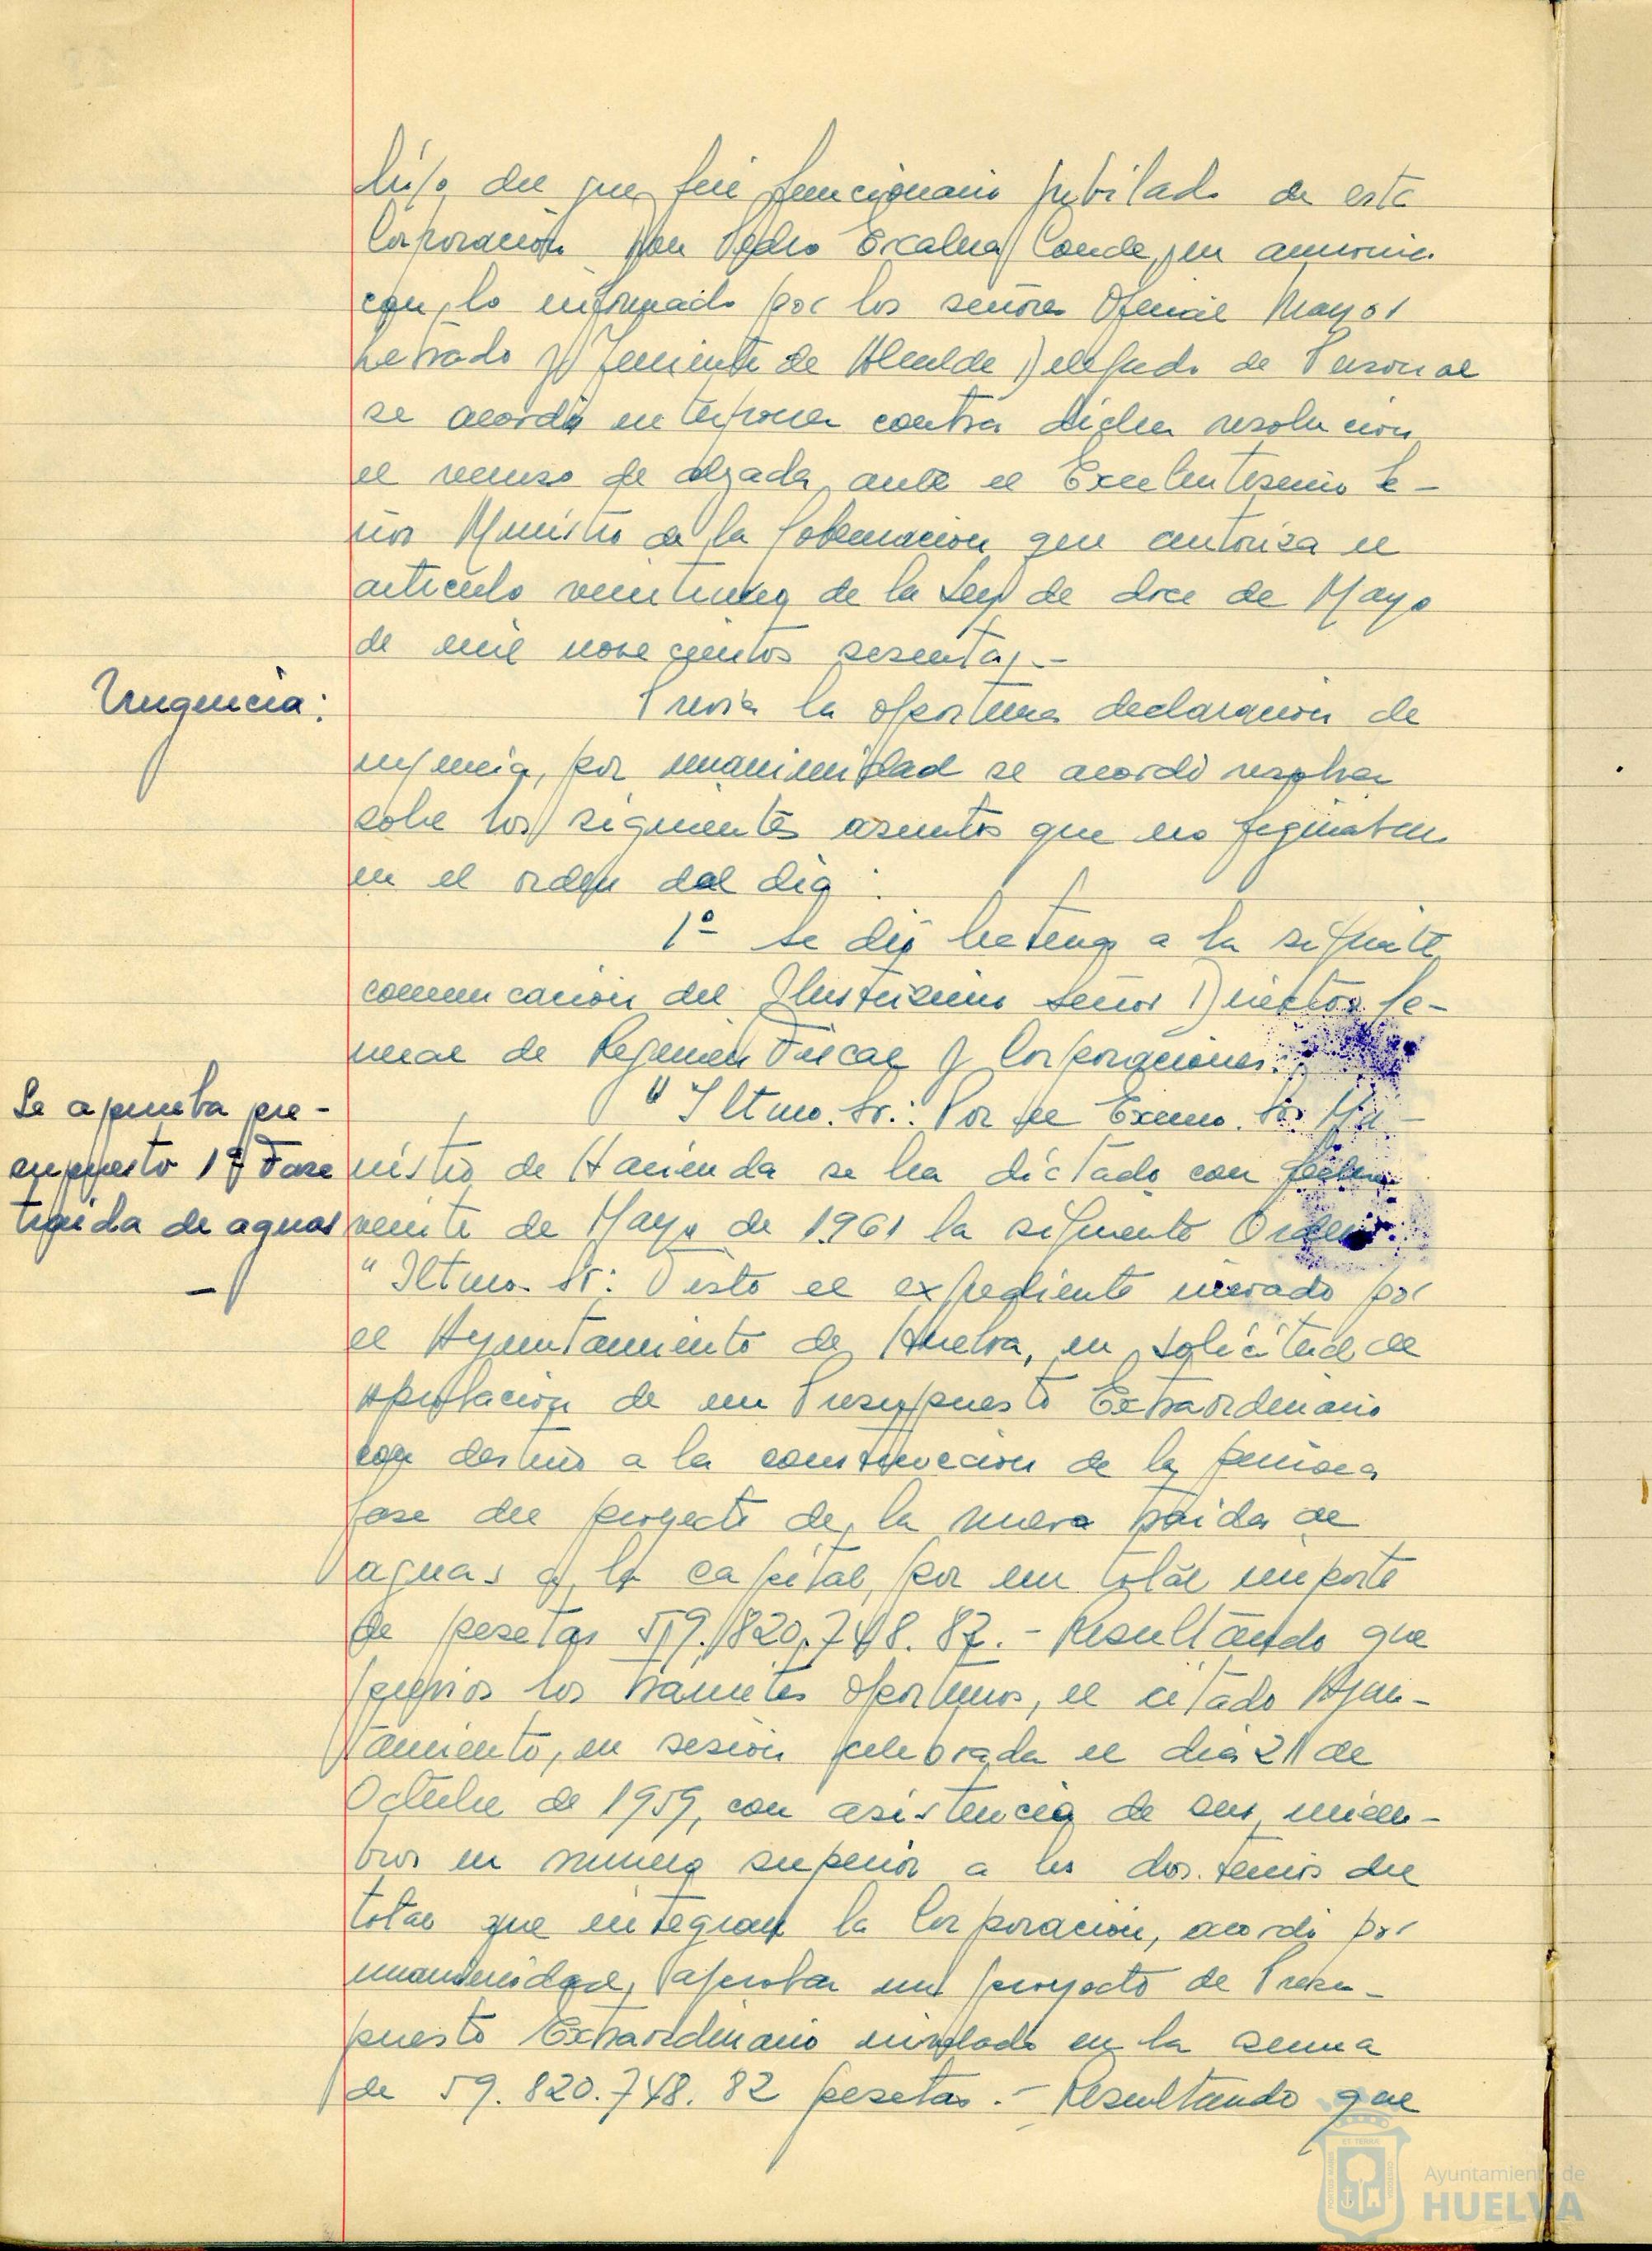 hijo del que fué funcionario jubilado de esta
Corporación Don Pedro Escalera Conde, en armonía
con lo informado por los señores Oficial Mayor
Letrado y Teniente de Alcalde Delegado de Personal
se acordó interponer contra dicha resolución
el recurso de alzada ante el Excelentísimo Se-
ñor Ministro de la Gobernación que autoriza el
artículo de la Ley de doce de Mayo
de mil novecientos sesenta.-
Urgencia:
Previa la oportuna declaración de
urgencia, por unanimidad se acordó resolver
sobre los siguientes asuntos que no figuraban
en el orden del día:
1º Se dió lectura a la siguiente
comunicación del Ilustrísimo Señor Director Ge-
neral de Régimen Fiscal y Corporaciones:
Se aprueba pre-
supuesto 1ª Fase
traida de aguas
"Iltmo. Sr.: Por el Excmo. Sr. Mi-
nistro de Hacienda se ha dictado con fecha
veinte de Mayo de 1.961 la siguiente Orden:
"Iltmo. Sr: Visto el expediente incoado por
el Ayuntamiento de Huelva, en solicitud de
aprobación de un Presupuesto Extraordinario
con destino a la construcción de la primera
fase del proyecto de la nueva traida de
aguas a la capital, por un total importe
de pesetas 59.820.748.82.- Resultando que
previos los trámites oportunos, el citado Ayun-
tamiento, en sesión celebrada el día 21 de
Octubre de 1959, con asistencia de sus miem-
bros en número superior a los dos tercios del
total que integran la Corporación, acordó por
unanimidad, aprobar un proyecto de Presu-
puesto Extraordinario nivelado en la suma
de 59.820.748.82 pesetas.- Resultando que
Ayuntamiento de
HUELVA